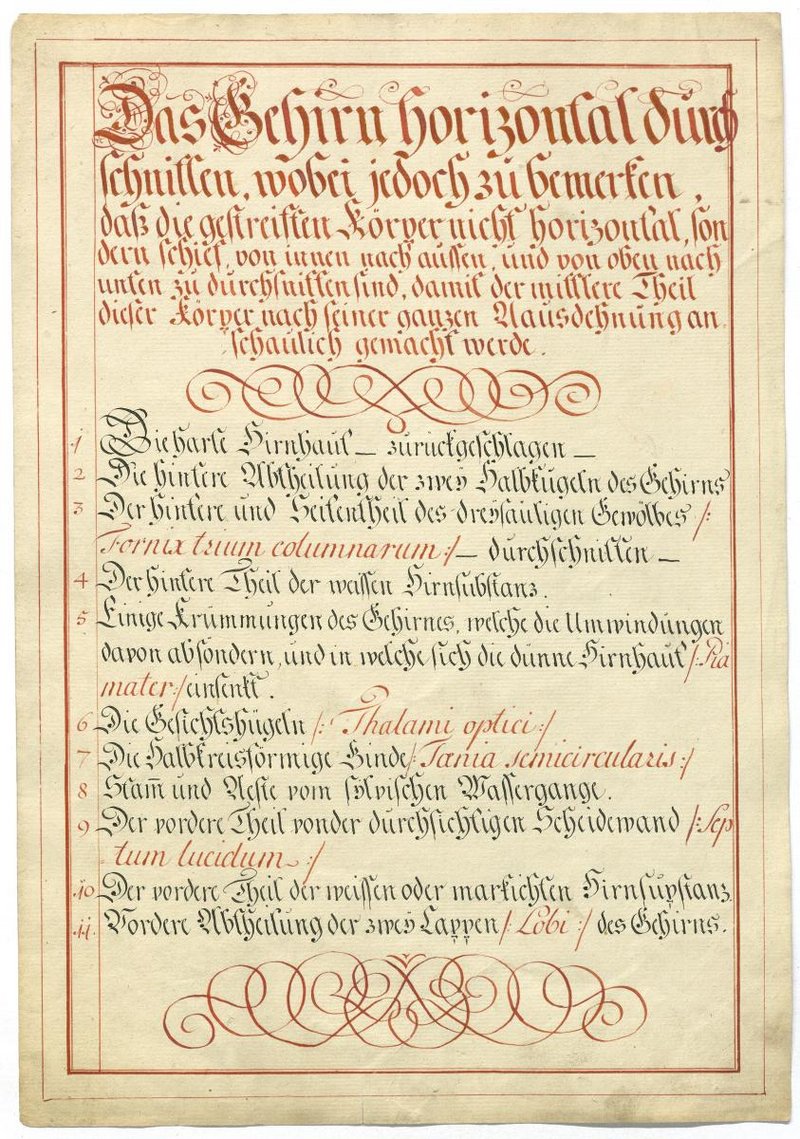 Das Gehirn horizontal durch
schnitten, wobei jedoch zu bemerken,
daß die gestreiften Körper nicht horizontal, son
dern schief, von innen nach aussen, und von oben nach
unten zu durchsnitten sind, damit der mittlere Theil
dieser Körper nach seiner ganzen Aausdehnung an
schaulich gemacht werde.
1 Die harte Hirnhaut — zurückgeschlagen —
2 Die hintere Abtheilung der zweÿ Halbkugeln des Gehirns
3 Der hintere und Seitentheil des dreÿsäuligen Gewölbes /:
Fornix trium columnarum :/ — durchschnitten —
4 Der hintere Theil der weissen Hirnsubstanz.
5 Einige Krümmungen des Gehirnes, welche die Umwindungen
davon absondern, und in welche sich die dünne Hirnhaut /: Pia
mater :/ einsenkt.
6 Die Gesichtshügeln /: Thalami optici :/
7 Die Halbkreisförmige Binde /: Tænia semicircularis :/
8 Stam̅ und Aeste vom sylvischen Wassergange.
9 Der vordere Theil von der durchsichtigen Scheidewand /: Sep
tum lucidum :/
10 Der vordere Theil der weissen oder markichten Hirnsupstanz.
11 Vordere Abtheilung der zweÿ Lappen /: Lobi :/ des Gehirns.